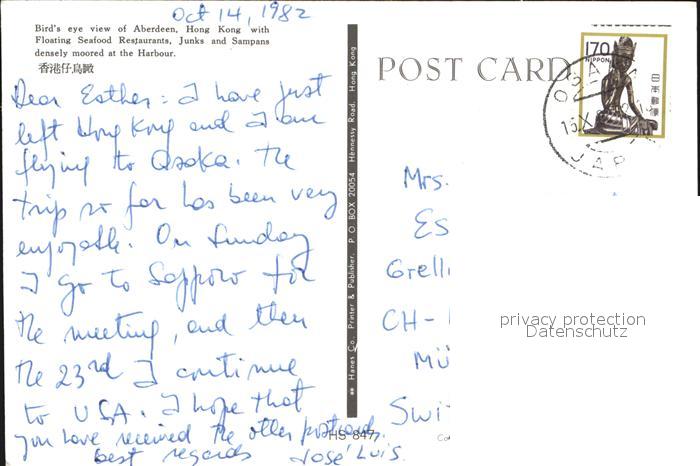 Oct 14, 1982
Bird's eye view of Aberdeen, Hong Kong with
Floating Seafood Restaurants, Junks and Sampans
densely moored at the Harbour.
香港仔鳥瞰
Dear Esther: I have just
left Hong Kong and I am
flying to Osaka. The
trip so far has been very
enjoyable. On Sunday
I go to Sapporo for
the meeting, and then
the 23rd I continue
to USA. I hope that
you have received the other postcards.
best regards José Luis.
** Hanes Co., Printer & Publisher. P O BOX 20054 Hennessy Road, Hong Kong
HS-8477
POST CARD
170
NIPPON
日本郵便
OSAKA
15.X
JAP
Mrs.
Es
Grelli
CH-
Mü
Swi
privacy protection
Datenschutz